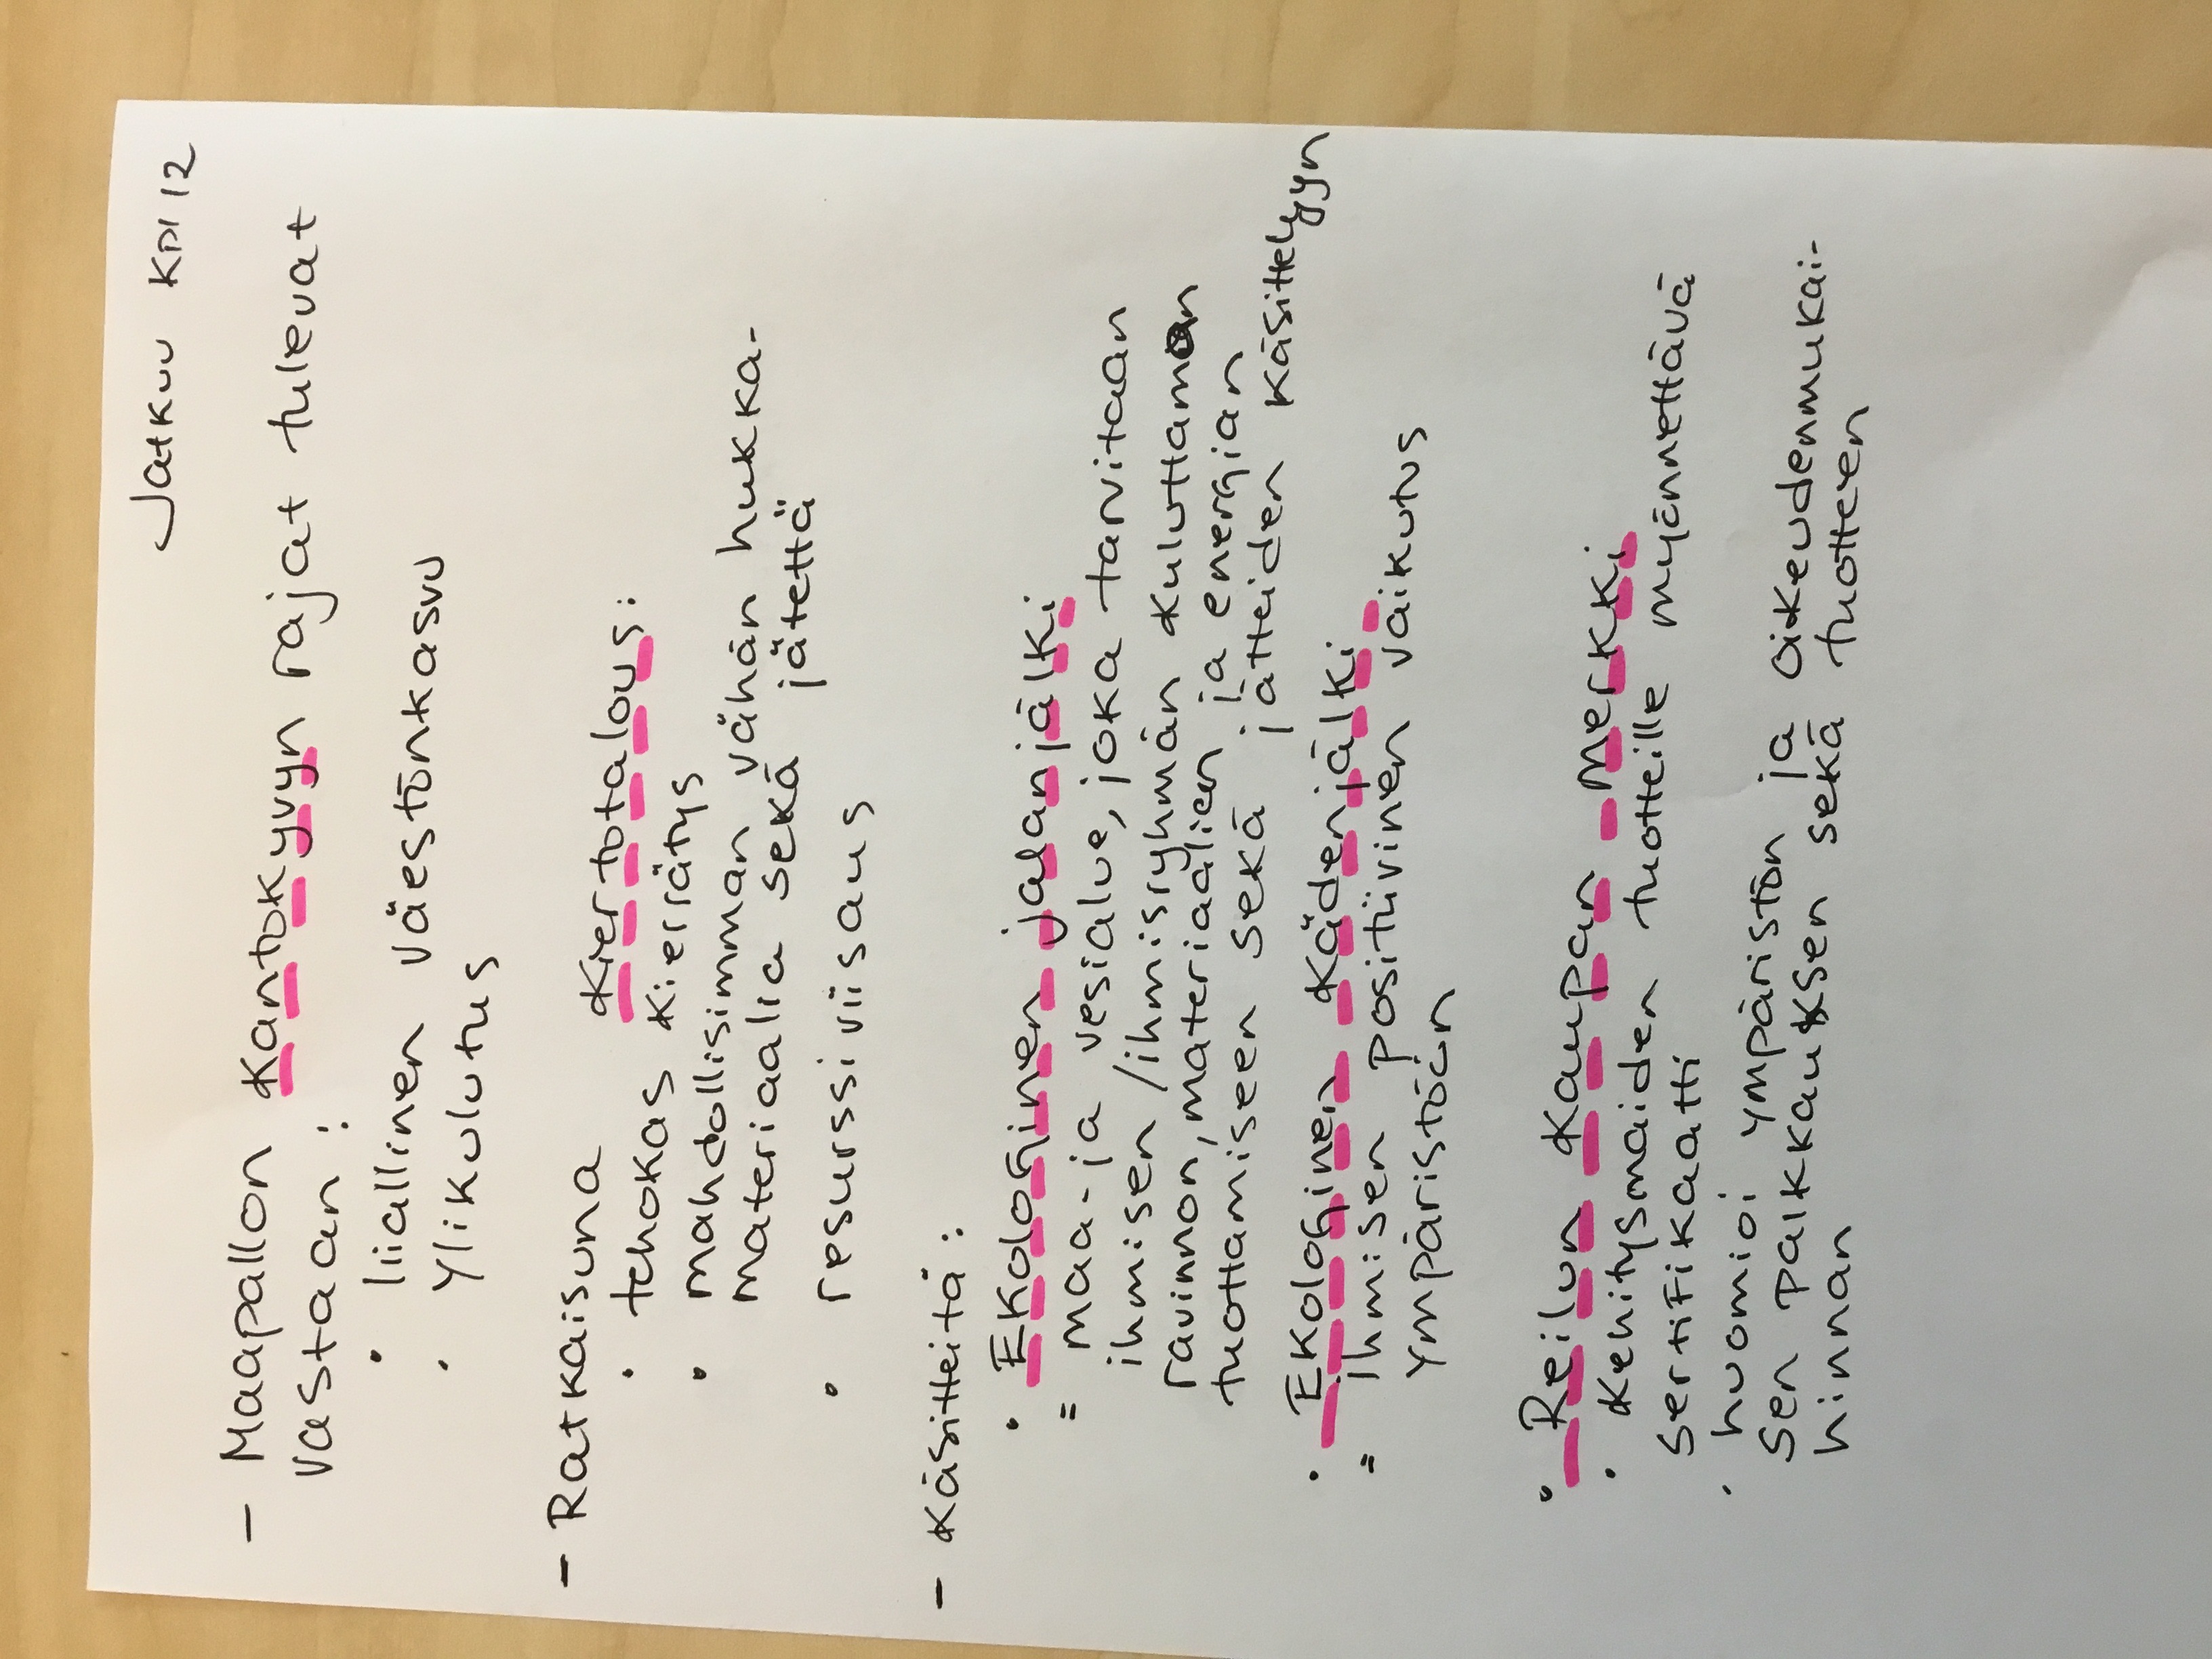 Jatkuu kpl 12
- Maapallon kantokyvyn rajat tulevat
vastaan:
• liiallinen väestönkasvu
• ylikulutus
- Ratkaisuna kiertotalous:
• tehokas kierrätys
• mahdollisimman vähän hukka-
materiaalia sekä jätettä
• resurssiviisaus
- Käsitteitä:
• Ekologinen jalanjälki
= maa- ja vesialue, joka tarvitaan
ihmisen /ihmisryhmän kuluttaman
ravinnon, materiaalien ja energian
tuottamiseen sekä jätteiden käsittelyyn
• Ekologinen kädenjälki
= ihmisen positiivinen vaikutus
ympäristöön
• Reilun kaupan -merkki
• kehitysmaiden tuotteille myönnettävä
sertifikaatti
• huomioi ympäristön ja oikeudenmukai-
sen palkkauksen sekä tuotteen
hinnan